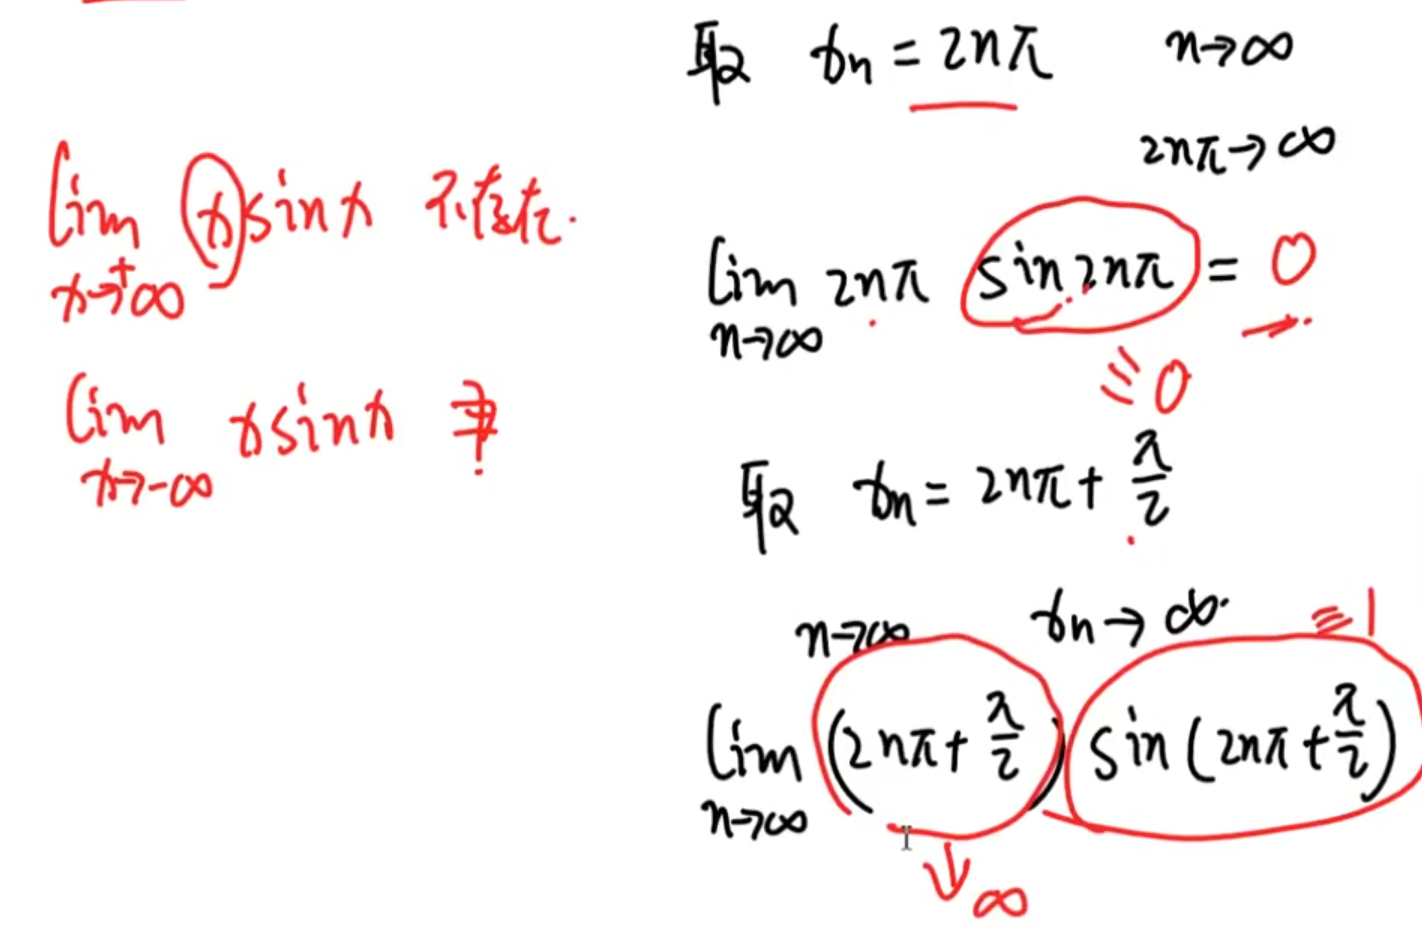 lim x sin x 不存在.
x→+∞
lim x sin x ∄
x→-∞
取 xn = 2nπ n→∞
2nπ→∞
lim 2nπ sin 2nπ = 0
n→∞
≡0
取 xn = 2nπ + π/2
n→∞ xn→∞.
≡1
lim (2nπ + π/2) sin (2nπ + π/2)
n→∞
↓∞